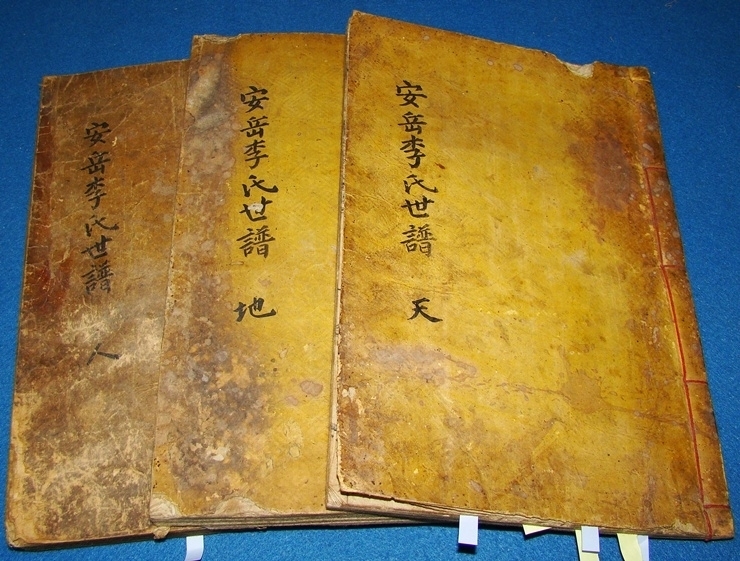 安岳李氏世譜 天
安岳李氏世譜 地
安岳李氏世譜 人